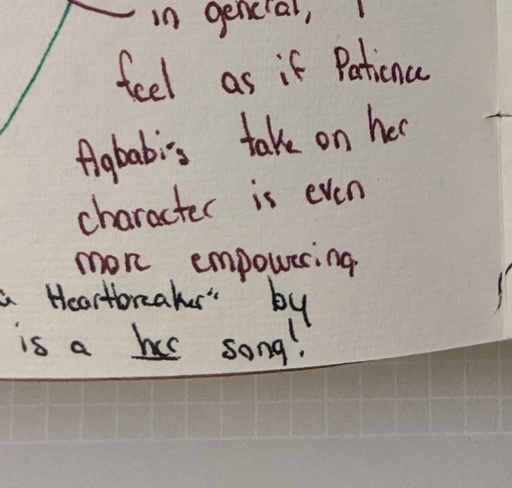 in general, I
feel as if Patience
Agbabi's take on her
character is even
more empowering.
Heartbreaker" by
is a her song!